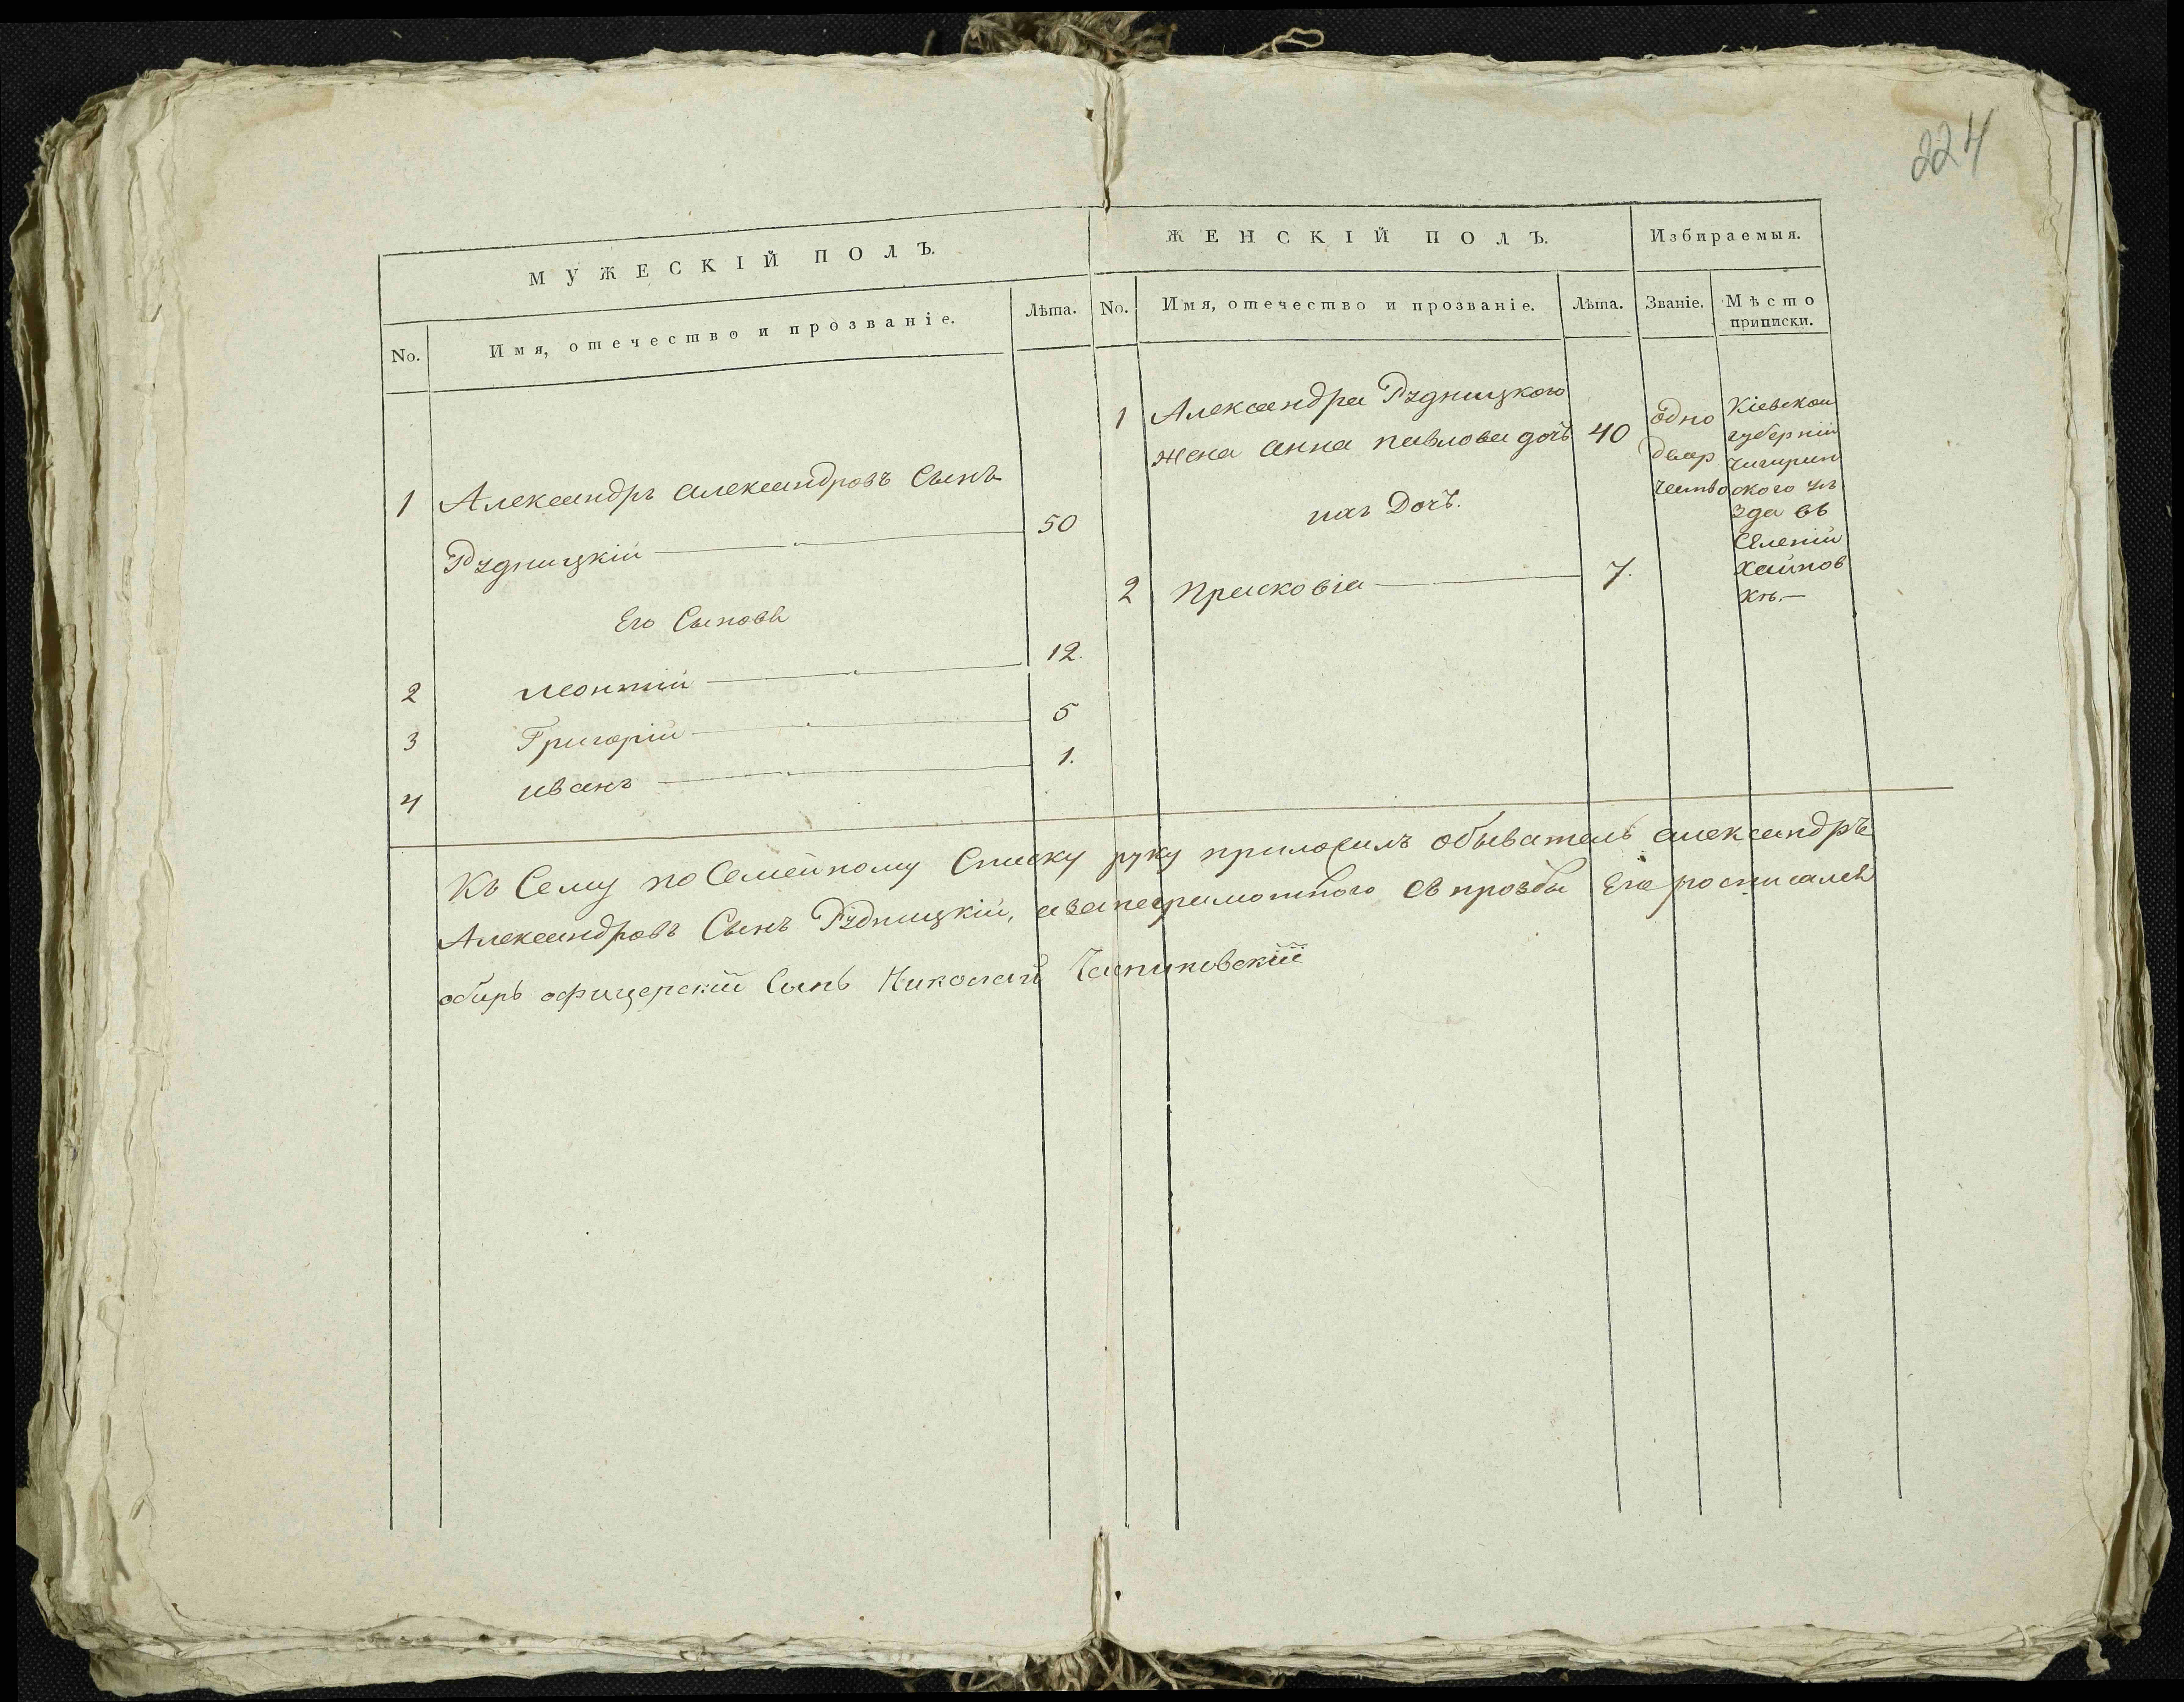 224
МУЖЕСКІЙ ПОЛЪ.
No.
Имя, отечество и прозваніе.
Лѣта.
1
Александръ александровъ Сынъ
Рудницкій
50
Его Сыновя
2
леонтій
12.
3
Григорій
5
4
иванъ
1.
ЖЕНСКІЙ ПОЛЪ.
Избираемыя.
No.
Имя, отечество и прозваніе.
Лѣта.
Званіе.
Мѣсто
приписки.
1
Александра Рудницкого
жена анна павлова дочь
40
ихъ Дочь.
2
Прасковіа
7.
одно
двор
чество
Кіевской
губерніи
чигирин
ского уѣ
зда въ
Селеніи
кѣ.
Къ Сему посемейному Списку руку приложилъ обыватель александръ
Александровъ Сынъ Рудницкій, азанеграмотного съ прозбы Его росписался
оберъ офицерскій Сынъ Николай